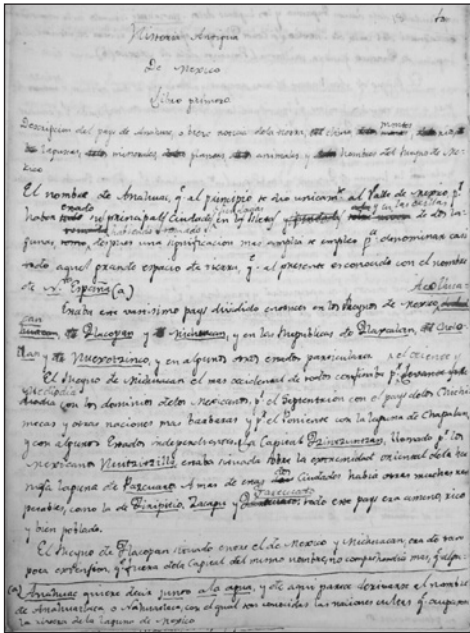 Historia Antigua
De Mexico
Libro primero
Descripcion del pays de Anahuac, o breve noticia de la tierra, clima, montes, rios
lagunas, minerales, plantas, animales y hombres del Reyno de Me-
xico
El nombre de Anahuac, q.e al principio se dio unicam.te al Valle de Mexico, p.r
haber estado sus principales Ciudades en las Isletas y en las orillas de dos la-
gunas, despues una significacion mas amplia se empleo p.a denominar casi
todo aquel grande espacio de tierra, q.e al presente es conocido con el nombre
de N.a España (a)
Estaba este vastisimo pays dividido entonces en los Reynos de Mexico, Acolhua-
can, Tlacopan y Michuacan, y en las Republicas de Tlaxcallan, Cholo-
llan y Huexotzinco, y en algunos otros estados particulares
El Reyno de Michuacan el mas occidental de todos confinaba p.r Levante y
Mediodia con los dominios de los Mexicanos, p.r el Septentrion con el pays de los Chichi-
mecas y otras naciones mas barbaras y p.r el Poniente con la laguna de Chapallan,
y con algunos Estados independientes. La Capital Tzintzuntzan, llamado p.r los
Mexicanos Huitzitzilla, estaba situada sobre la extremidad oriental de la her-
mosa laguna de Pazcuaro. A mas de estas dos Ciudades habia otras muchas res-
petables, como la de Tiripitio, Zacapu y Tarecuato: todo este pays era ameno, rico
y bien poblado.
El Reyno de Tlacopan situado entre el de Mexico y Michuacan, era de tan
poca extension, q.e fuera de la Capital del mismo nombre, no comprehendia mas, q.e algu-
(a) Anahuac quiere decir junto a la agua, y de aqui parece derivarse el nombre
de Anahuatlaca o Nahuatlaca, con el qual son conocidas las naciones cultas q.e ocuparon
la rivera de la laguna de Mexico